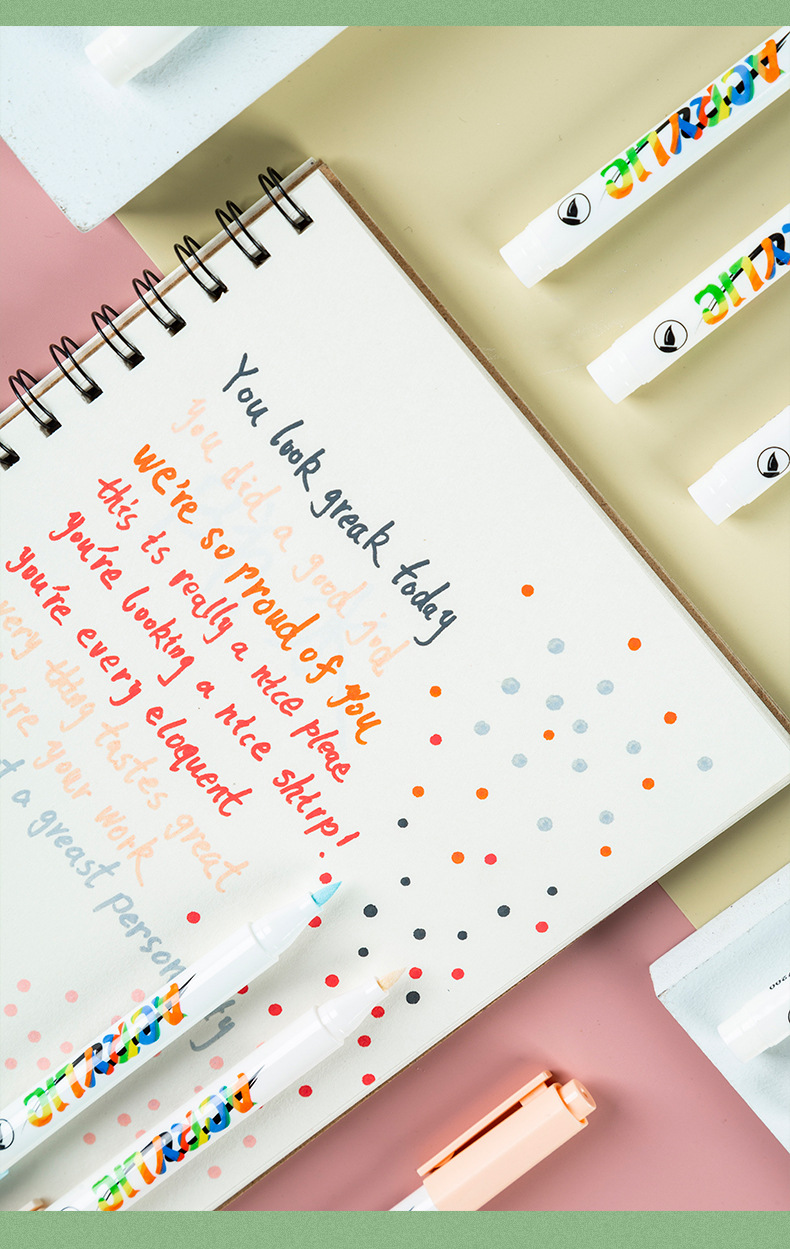 You look greak today
you did a good jod
we're so proud of you
this is really a nice pleae
you're looking a nice shirp!
you're every eloquent
very thing tastes great
ire your work
t a greast person ty
ACRYLIC
ACRYLIC
ACRYLIC
ACRYLIC